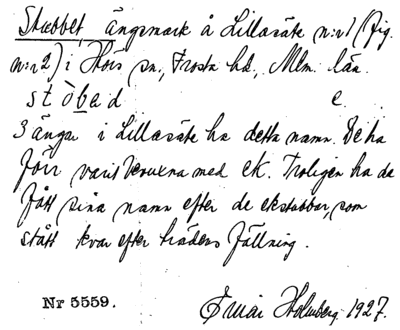 Stubbet, ängsmark å Lillasäte n:r 1 (fig.
n:r 2) i Hörs sn, Frosta hd., Mlm. län.
stòbad e.
3 ängar i Lillasäte ha detta namn. De ha
förr varit bevuxna med ek. Troligen ha de
fått sina namn efter de ekstubbar, som
stått kvar efter trädens fällning.
Nr 5559. Holmberg. 1927.